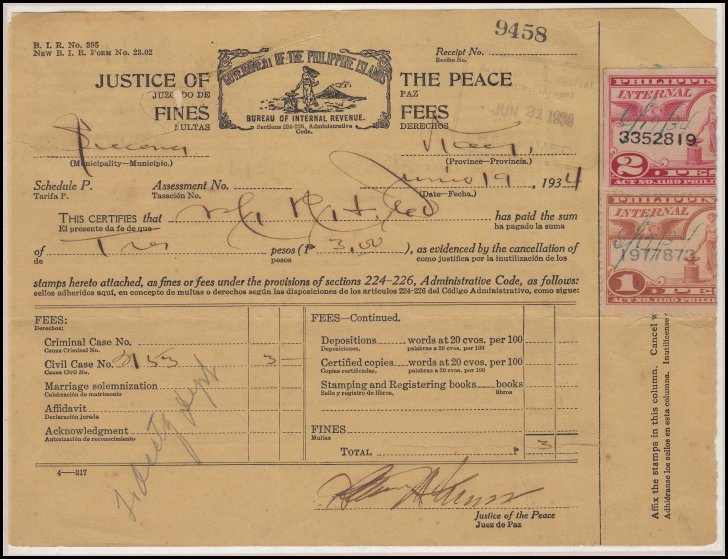 9458
B. I. R. No. 395
NEW B. I. R. FORM No. 23.02
Receipt No.
Recibo No.
JUSTICE OF THE PEACE
JUZGADO DE PAZ
FINES FEES
MULTAS DERECHOS
GOVERNMENT OF THE PHILIPPINE ISLANDS
BUREAU OF INTERNAL REVENUE.
Sections 224-226, Administrative Code.
JUN 21
(Municipality—Municipio.) (Province—Provincia.)
Schedule P. Assessment No. Junio 19, 1934
Tarifa P. Tasación No. (Date—Fecha.)
THIS CERTIFIES that has paid the sum
El presente da fe de que ha pagado la suma
of Tres pesos (₱ 3.00), as evidenced by the cancellation of
de pesos como justifica por la inutilización de los
stamps hereto attached, as fines or fees under the provisions of sections 224-226, Administrative Code, as follows:
sellos adheridos aquí, en concepto de multas o derechos según las disposiciones de los artículos 224-226 del Código Administrativo, como sigue:
FEES:
Derechos:
Criminal Case No.
Causa Criminal No.
Civil Case No. 3153 3
Causa Civil No.
Marriage solemnization
Celebración de matrimonio
Affidavit
Declaración jurada
Acknowledgment
Autorización de reconocimiento
4—317
FEES—Continued.
Depositions words at 20 cvos. per 100
Deposiciones, palabras a 20 cvos. por 100
Certified copies words at 20 cvos. per 100
Copias certificadas, palabras a 20 cvos. por 100
Stamping and Registering books books
Sello y registro de libros, libros
FINES
Multas
TOTAL ₱
Justice of the Peace
Juez de Paz
PHILIPPIN
INTERNAL
3352819
2 PE
ACT NO. 1189 PHILI
PHILIPPIN
INTERNAL
1977873
1 PE
ACT NO. 1189 PHILI
Affix the stamps in this column. Cancel w
Adhiéranse los sellos en esta columna. Inutilícense